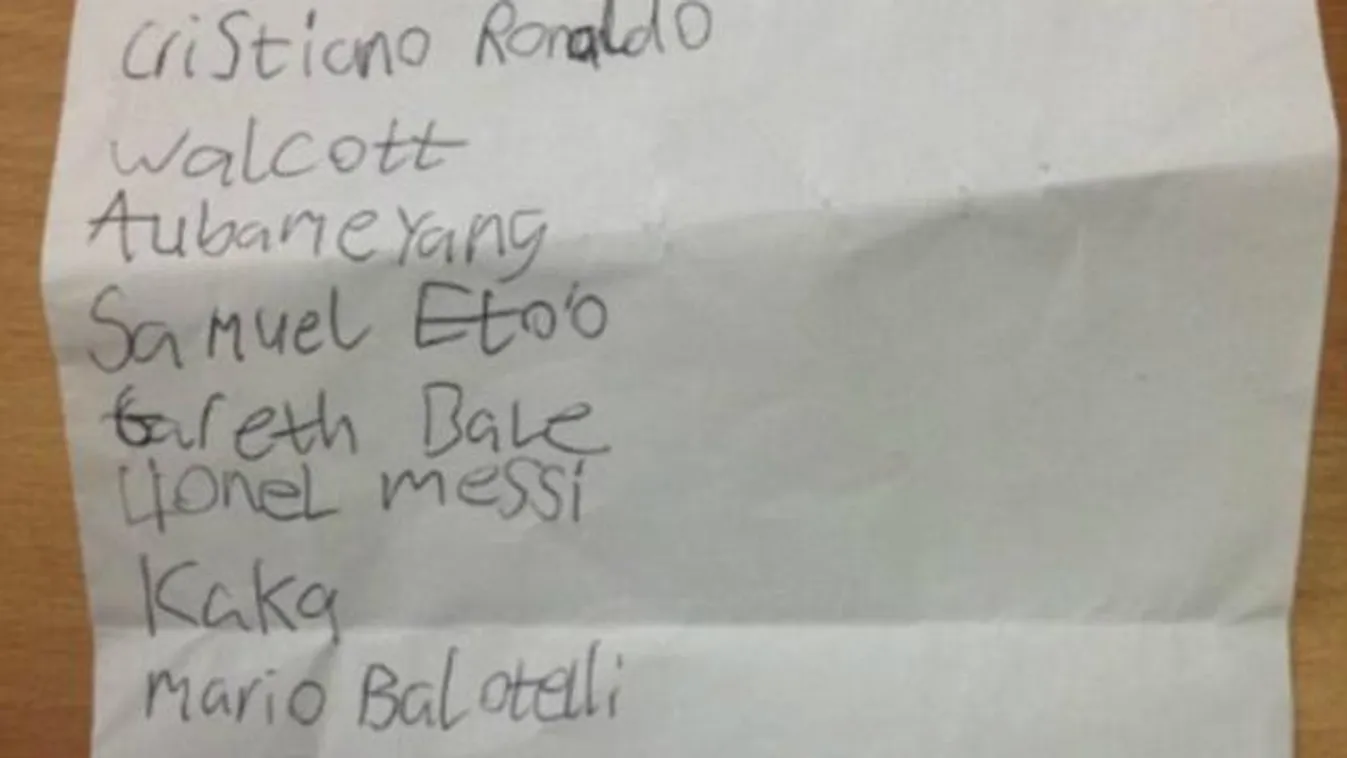 Cristiano Ronaldo
Walcott
Aubameyang
Samuel Eto'o
Gareth Bale
Lionel messi
Kaka
Mario Balotelli